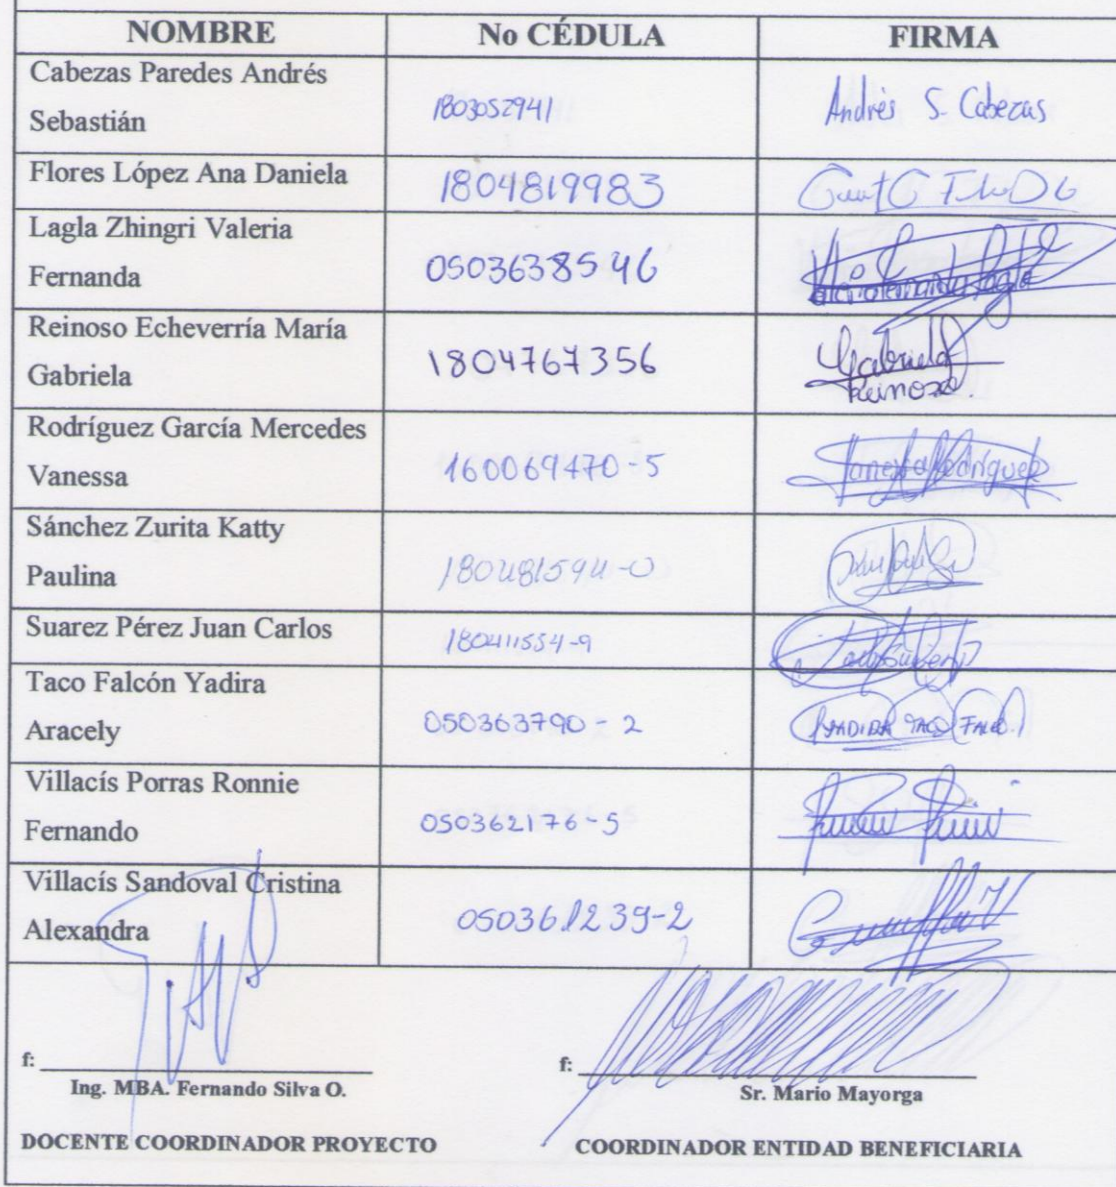 NOMBRE No CÉDULA FIRMA
Cabezas Paredes Andrés
Sebastián 1803052941 Andrés S. Cabezas
Flores López Ana Daniela 1804819983
Lagla Zhingri Valeria
Fernanda 0503638546
Reinoso Echeverría María
Gabriela 1804767356 Gabriela
Reinoso.
Rodríguez García Mercedes
Vanessa 160069470-5 Vanessa Rodríguez
Sánchez Zurita Katty
Paulina 180481594-0
Suarez Pérez Juan Carlos 180411554-9
Taco Falcón Yadira
Aracely 050363790-2 YADIRA TACO
Villacís Porras Ronnie
Fernando 050362176-5
Villacís Sandoval Cristina
Alexandra 050361239-2
f: f:
Ing. MBA. Fernando Silva O. Sr. Mario Mayorga
DOCENTE COORDINADOR PROYECTO COORDINADOR ENTIDAD BENEFICIARIA